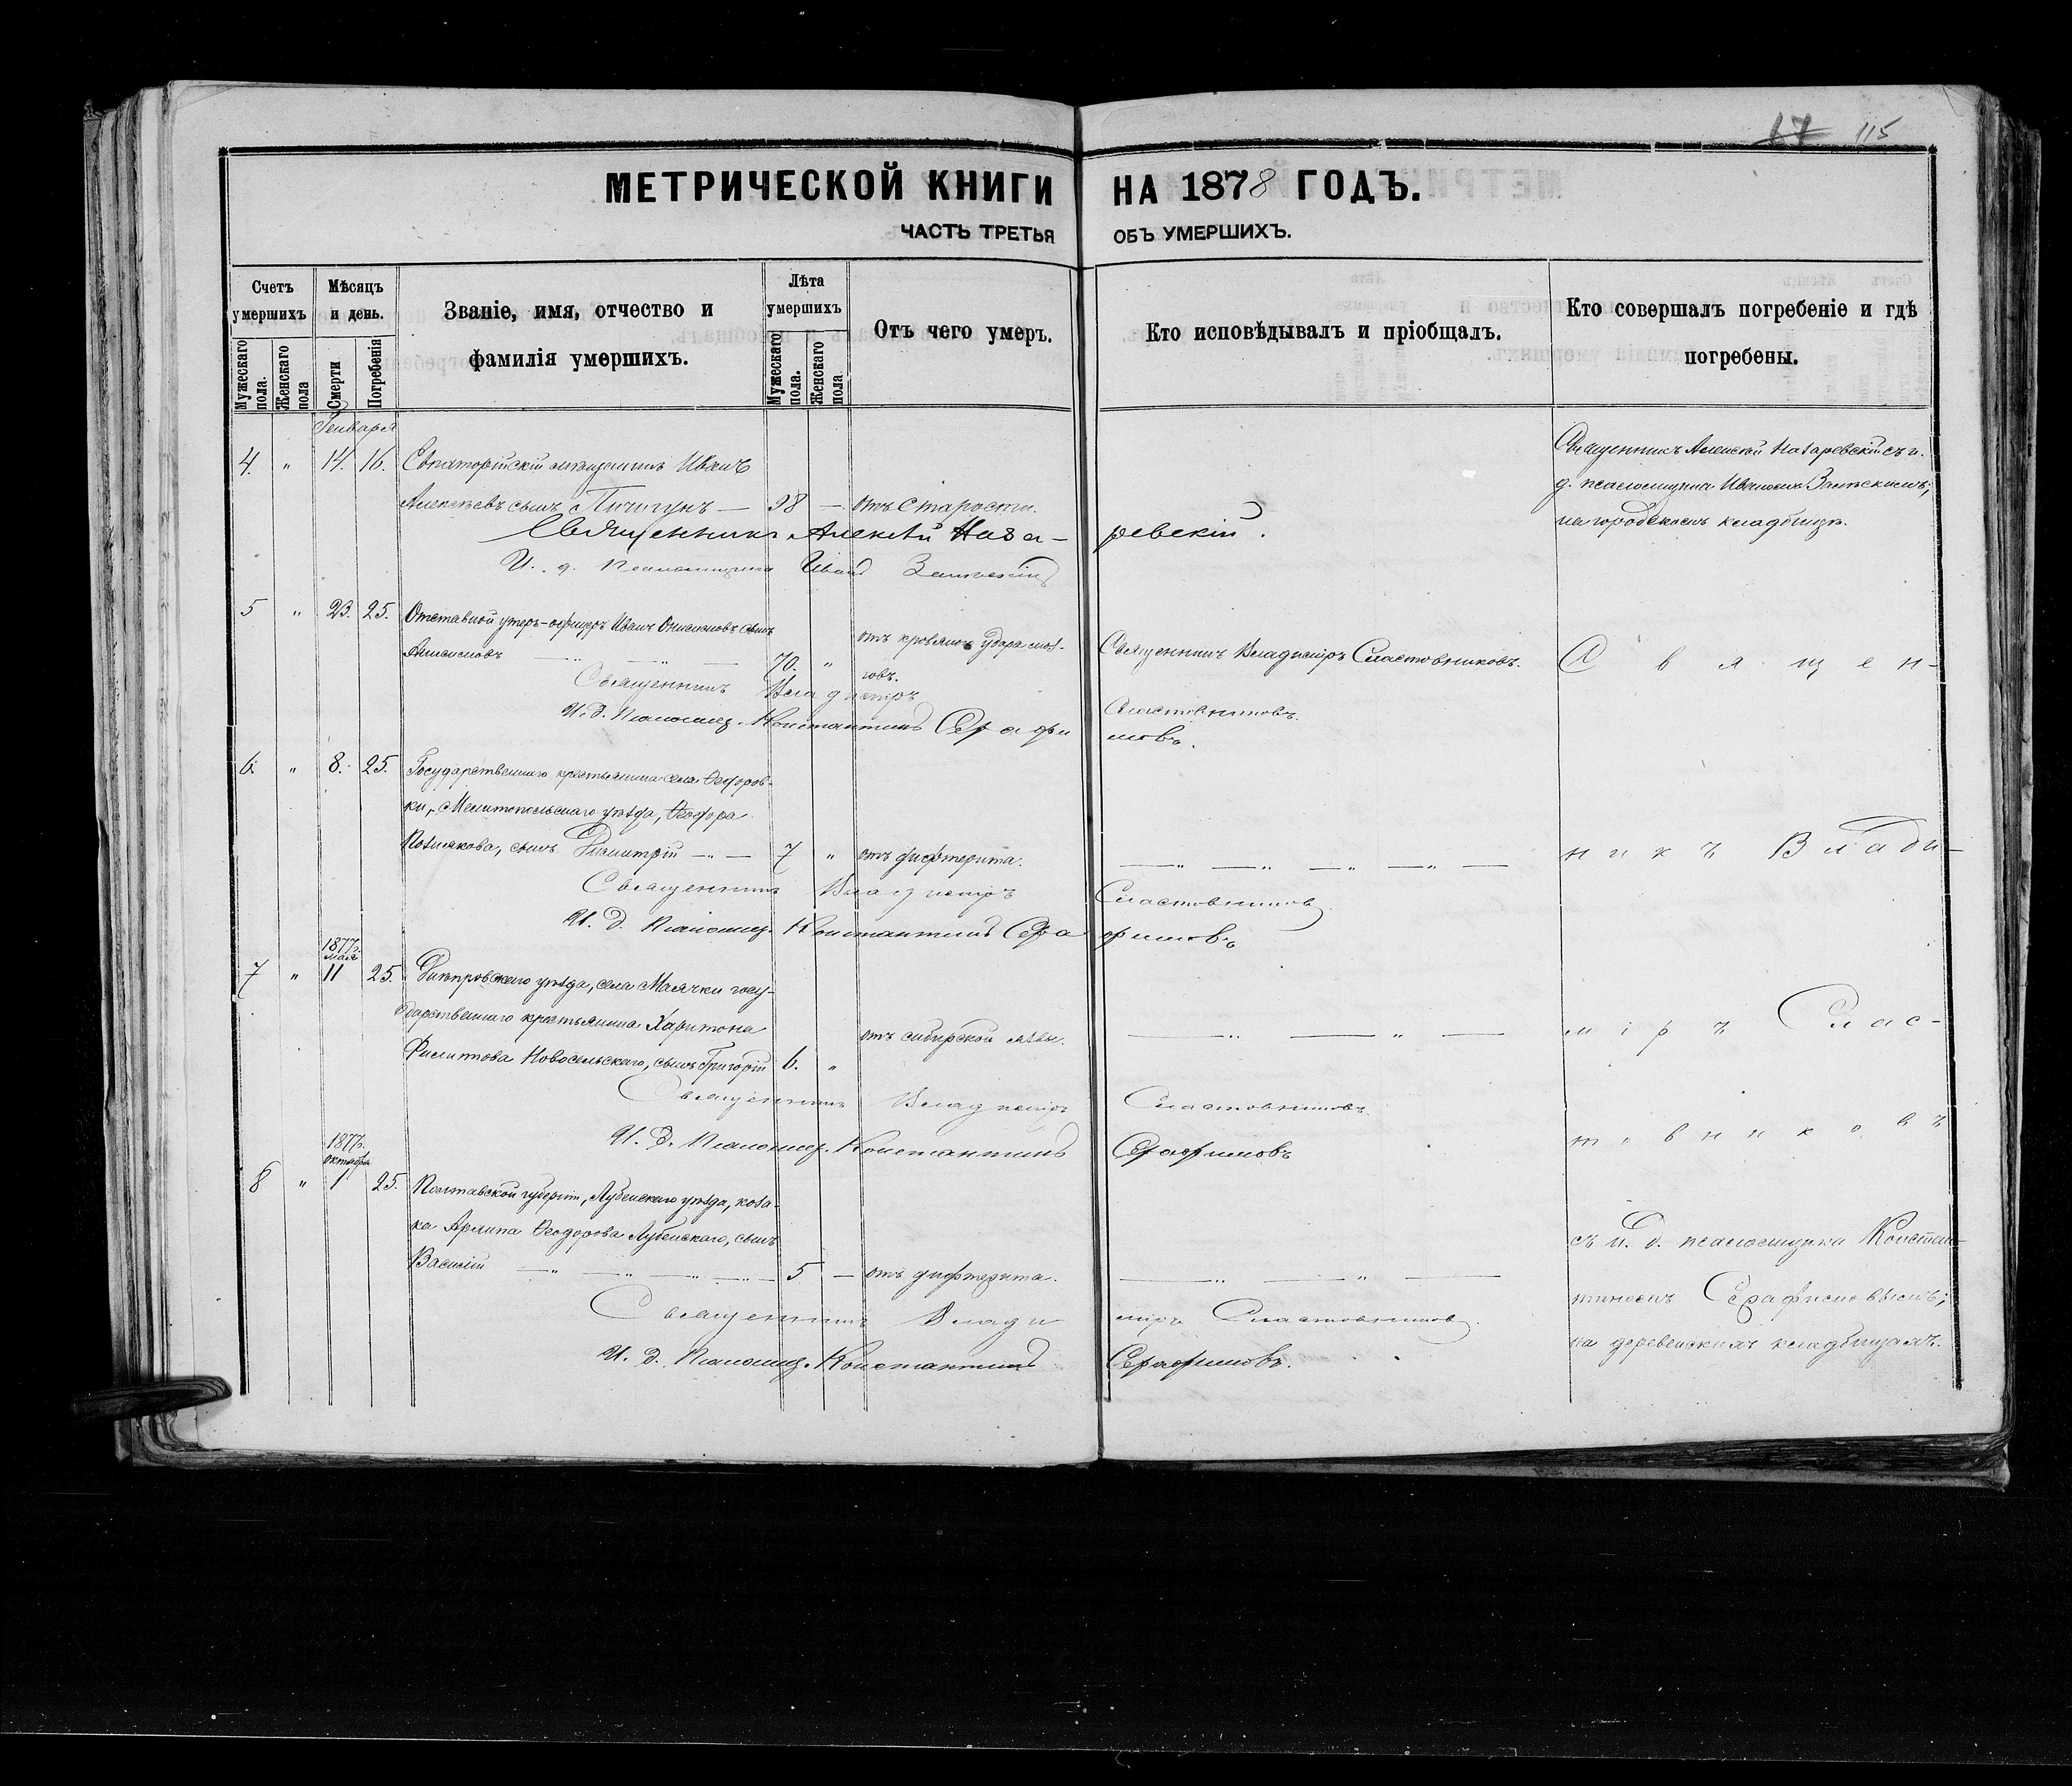 17 115
МЕТРИЧЕСКОЙ КНИГИ НА 1878 ГОДЪ.
ЧАСТЬ ТРЕТЬЯ ОБЪ УМЕРШИХЪ.
Счетъ умершихъ
Мѣсяцъ и день.
Званіе, имя, отчество и фамилія умершихъ.
Лѣта умершихъ
Отъ чего умеръ.
Кто исповѣдывалъ и пріобщалъ.
Кто совершалъ погребеніе и гдѣ погребены.
Мужескаго пола.
Женскаго пола
Смерти
Погребенія
Мужескаго пола.
Женскаго пола
Генваря
4. " 14. 16. Евпаторійскій мѣщанинъ Иванъ
Алексѣевъ сынъ Пичугунъ — 98 — отъ старости.
Священникъ Алексѣй Назаревскій съ и.
д. псаломщика Иваномъ
на городскомъ кладбищѣ.
Священникъ АлексѣйНаза- ревскій.
И. д. псаломщика Иванъ
5 " 23. 25. Отставной унтеръ-офицеръ Иванъ Онисимовъ сынъ
Анисимовъ — " — " — 70. " отъ кровянаго удара моз-
говъ.
Священникъ Владиміръ Сластовниковъ.
С в я щ е н -
Священникъ Владиміръ Сластовниковъ.
И. д. псаломщ. Константинъ Серафи мовъ.
6. " 8. 25. Государственнаго крестьянина села Ѳеодоров-
ки, Мелитопольскаго уѣзда, Ѳеодора
Познякова, сынъ Димитрій — " — 7 " отъ дифтерита. — " — " — " — " —
н и к ъ В л а д и -
Священникъ Владиміръ Сластовниковъ.
И. д. псаломщ. Константинъ Сера фимовъ
1877 г. мая
7 " 11 25. Днѣпровскаго уѣзда, села Маячки госу-
дарственнаго крестьянина Харитона
Филиппова Новосельскаго, сынъ Григорій 6. " отъ сибирской язвы. — " — " —
м і р ъ С л а с -
Священникъ Владиміръ Сластовниковъ.
И. д. псаломщ. Константинъ Серафимовъ
т о в н и к о в ъ
1877 г. октября
8 " 1 25. Полтавской губерніи, Лубенскаго уѣзда, коза-
ка Архипа Ѳеодорова Лубенскаго, сынъ
Василій — " — " — " — " — 5 — отъ дифтерита. — " — " —
съ и. д. псаломщика Констан-
тиномъ Серафимовымъ;
на деревенскихъ кладбищахъ.
Священникъ Влади міръ Сластовниковъ.
И. д. псаломщ. Константинъ Серафимовъ.